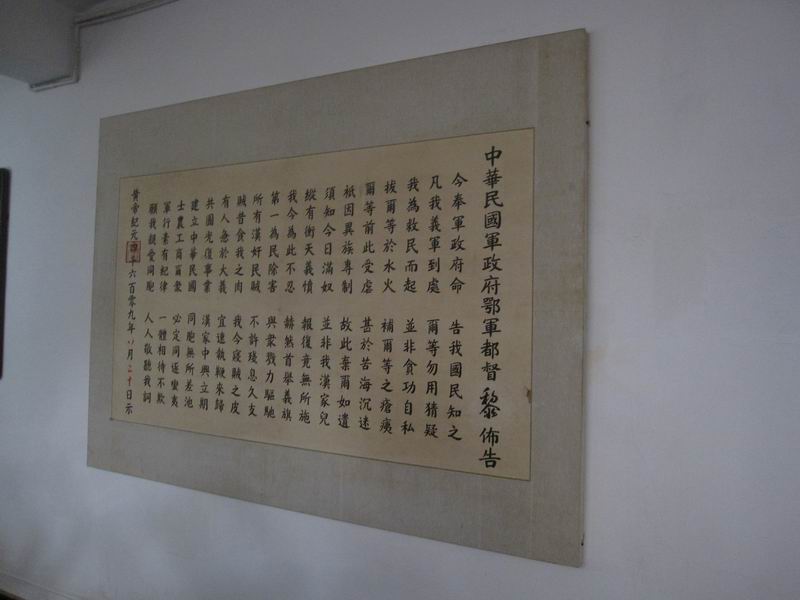 中華民國軍政府鄂軍都督黎佈告
今奉軍政府命　告我國民知之
凡我義軍到處　爾等勿用猜疑
我為救民而起　並非食功自私
拔爾等於水火　補爾等之瘡痍
爾等前此受虐　甚於苦海沉迷
祇因異族專制　故此棄爾如遺
須知今日滿奴　並非我漢家兒
縱有衝天義憤　報復竟無所施
我今為此不忍　赫然首舉義旗
第一為民除害　與衆戮力驅馳
所有漢奸民賊　不許殘息久支
賊昔食我之肉　我今寢賊之皮
有人急於大義　宜速執鞭來歸
共圖光復事業　漢家中興立期
建立中華民國　同胞無所差池
士農工商爾衆　必定同逐蠻夷
軍行素有紀律　一體相待不欺
願我親愛同胞　人人敬聽我詞
黃帝紀元四千六百零九年八月二十日示